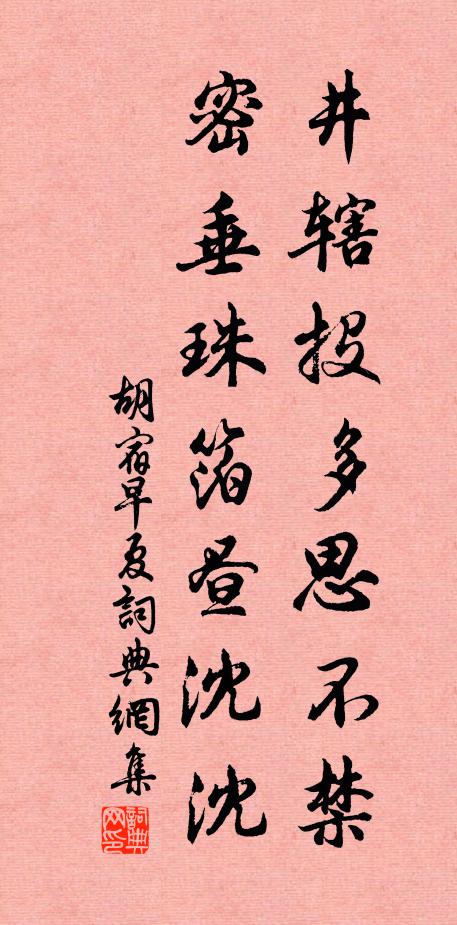 井辖投多思不禁
密垂珠箔昼沈沈
胡宿早夏詞典網集
詞典网印